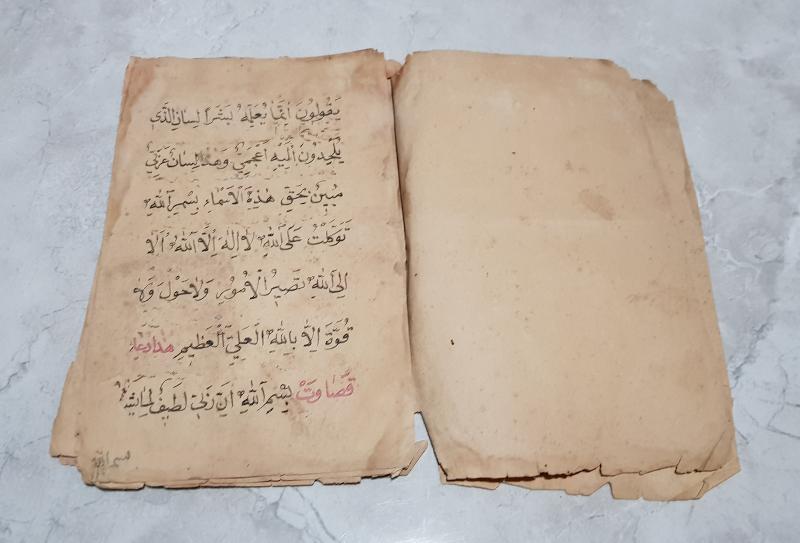 يَقُولُونَ اِنَّمَا يُعَلِّمُهُ بَشَرًا لِسَانُ الَّذِي
يُلْحِدُونَ اِلَيْهِ اَعْجَمِيٌّ وَهٰذَا لِسَانٌ عَرَبِيٌّ
مُبِينٌ بِحَقِّ هٰذِهِ الْاَسْمَاءِ بِسْمِ اللهِ
تَوَكَّلْتُ عَلَى اللهِ لَا اِلٰهَ اِلَّا اللهُ اَلَا
اِلَى اللهِ تَصِيرُ الْاُمُورُ وَلَا حَوْلَ وَلَا
قُوَّةَ اِلَّا بِاللهِ الْعَلِيِّ الْعَظِيمِ هذا دعاء
بِسْمِ اللهِ اِنَّ رَبِّي لَطِيفٌ لِمَا يَشَاءُ
بسم الله